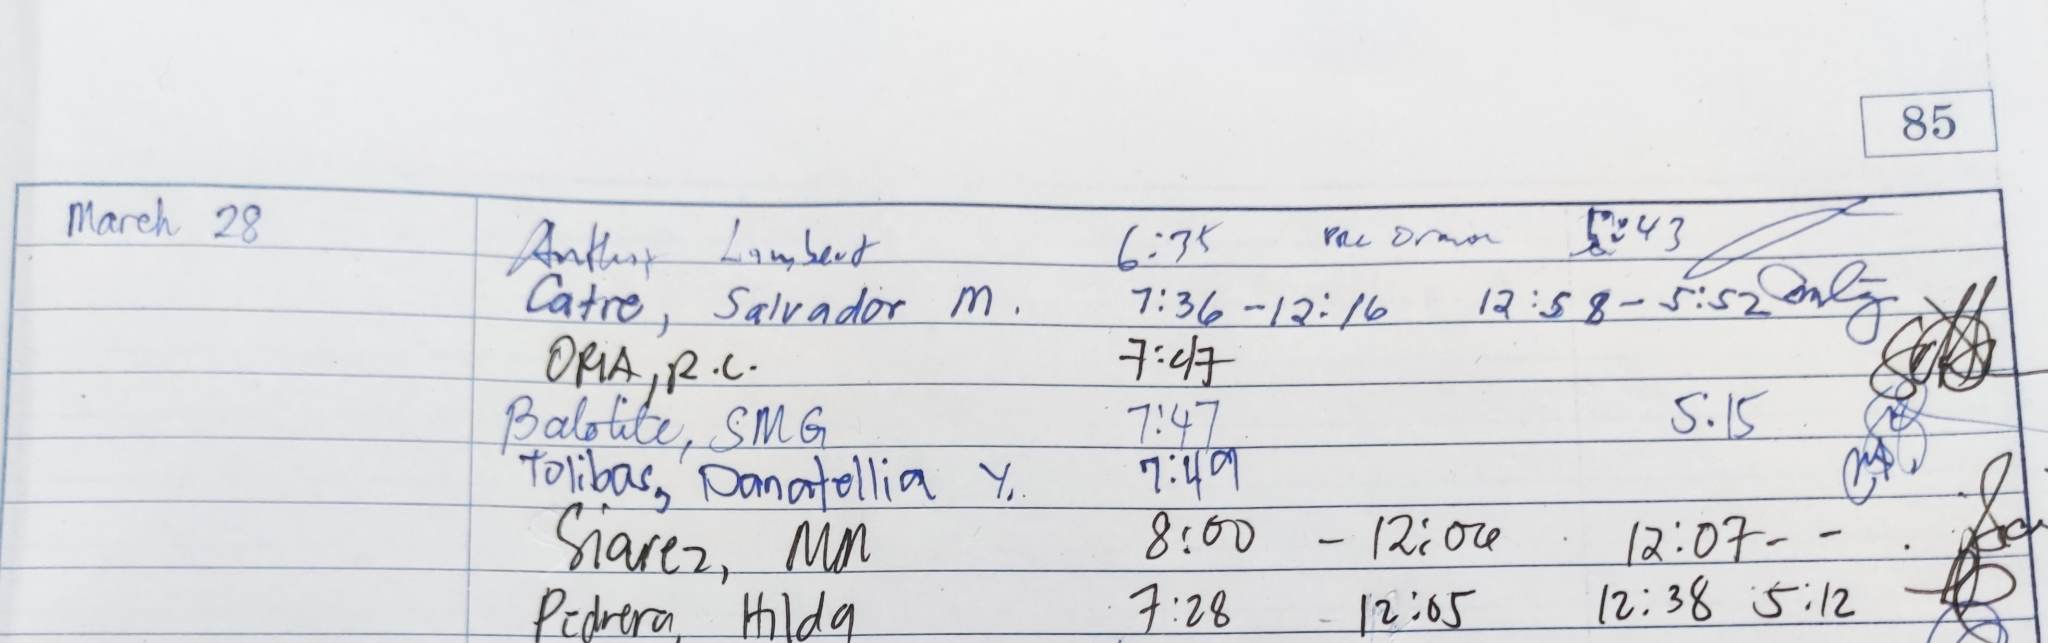 85
March 28 Lambert 6:35 :43
Catre, Salvador M. 7:36 - 12:16 12:58 - 5:52
ORIA, R.C. 7:47
Balotite, SMG 7:47 5:15
Tolibas, Danatellia Y. 7:49
Siarez, MM 8:00 - 12:06 12:07 - -
Pedrera, Hilda 7:28 12:05 12:38 5:12